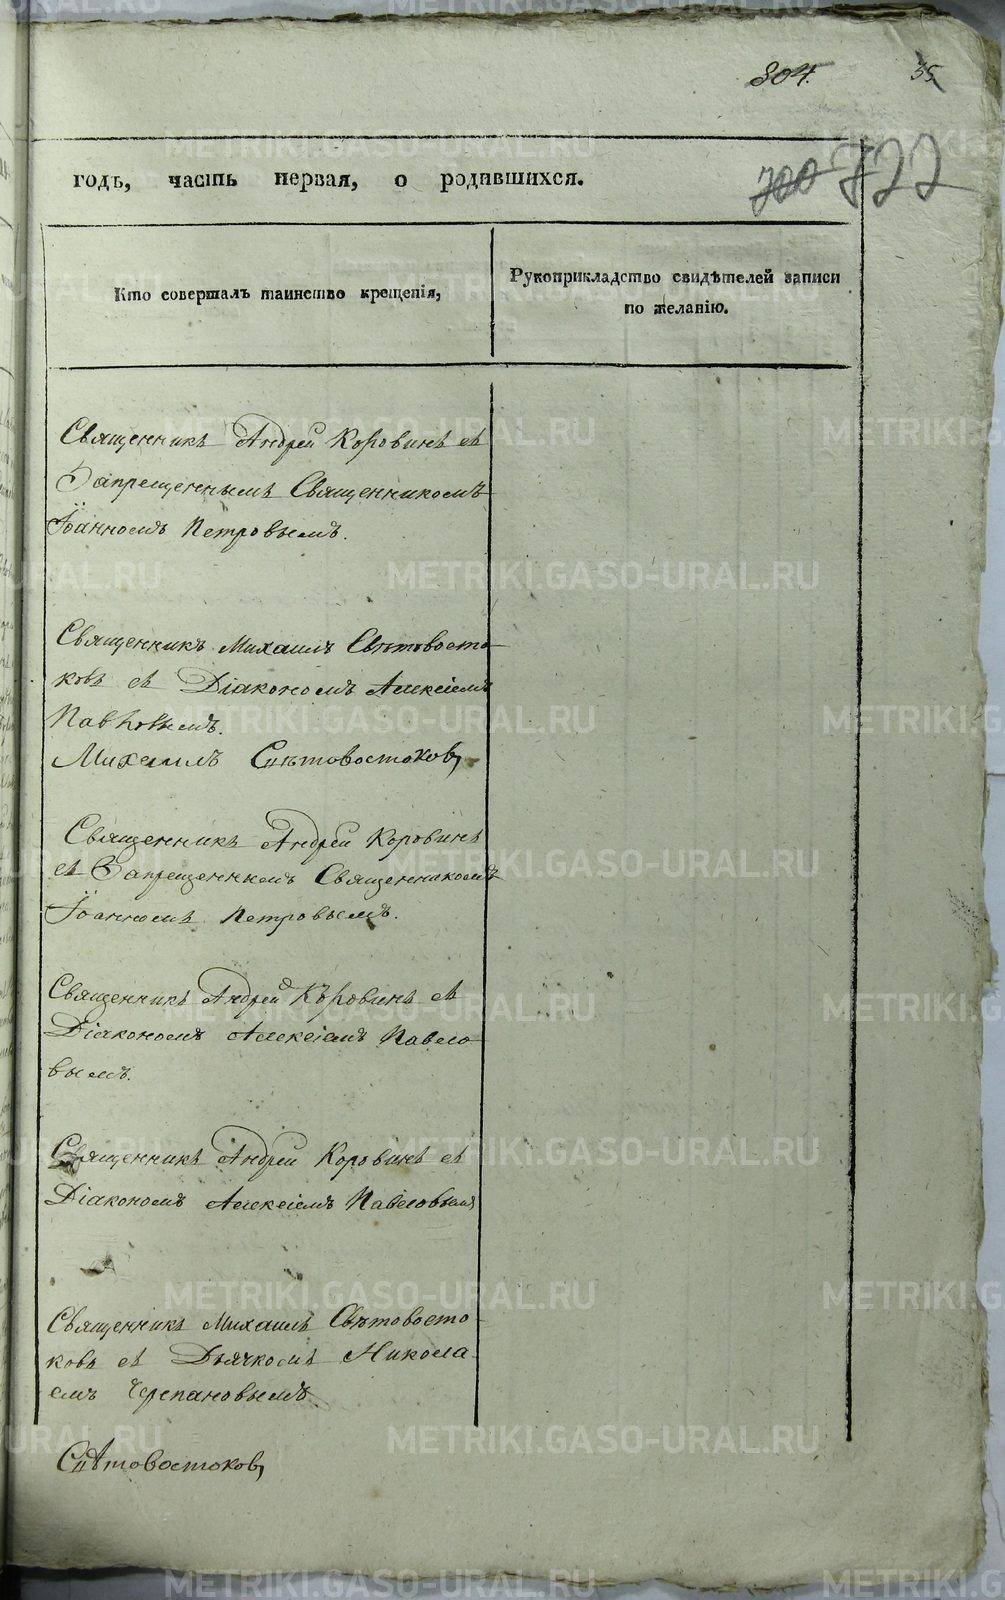 804.
35.
700 722
годъ, часть первая, о родившихся.
Кто совершалъ таинство крещенія,
Рукоприкладство свидѣтелей записи
по желанію.
Священникъ Андрей Коровинъ съ
Запрещеннымъ Священникомъ
Іоанномъ Петровымъ.
Священникъ Михаилъ Свѣтовосто
ковъ съ Діакономъ Алексіемъ
Павловымъ.
Михаилъ Свѣтовостоковъ
Священникъ Андрей Коровинъ
съ Запрещеннымъ Священникомъ
Іоанномъ Петровымъ.
Священникъ Андрей Коровинъ съ
Діакономъ Алексіемъ Павло
вымъ.
Священникъ Андрей Коровинъ съ
Діакономъ Алексіемъ Павловымъ
Священникъ Михаилъ Свѣтовосто
ковъ съ Дьячкомъ Никола
емъ Черепановымъ.
Свѣтовостоковъ
METRIKI.GASO-URAL.RU